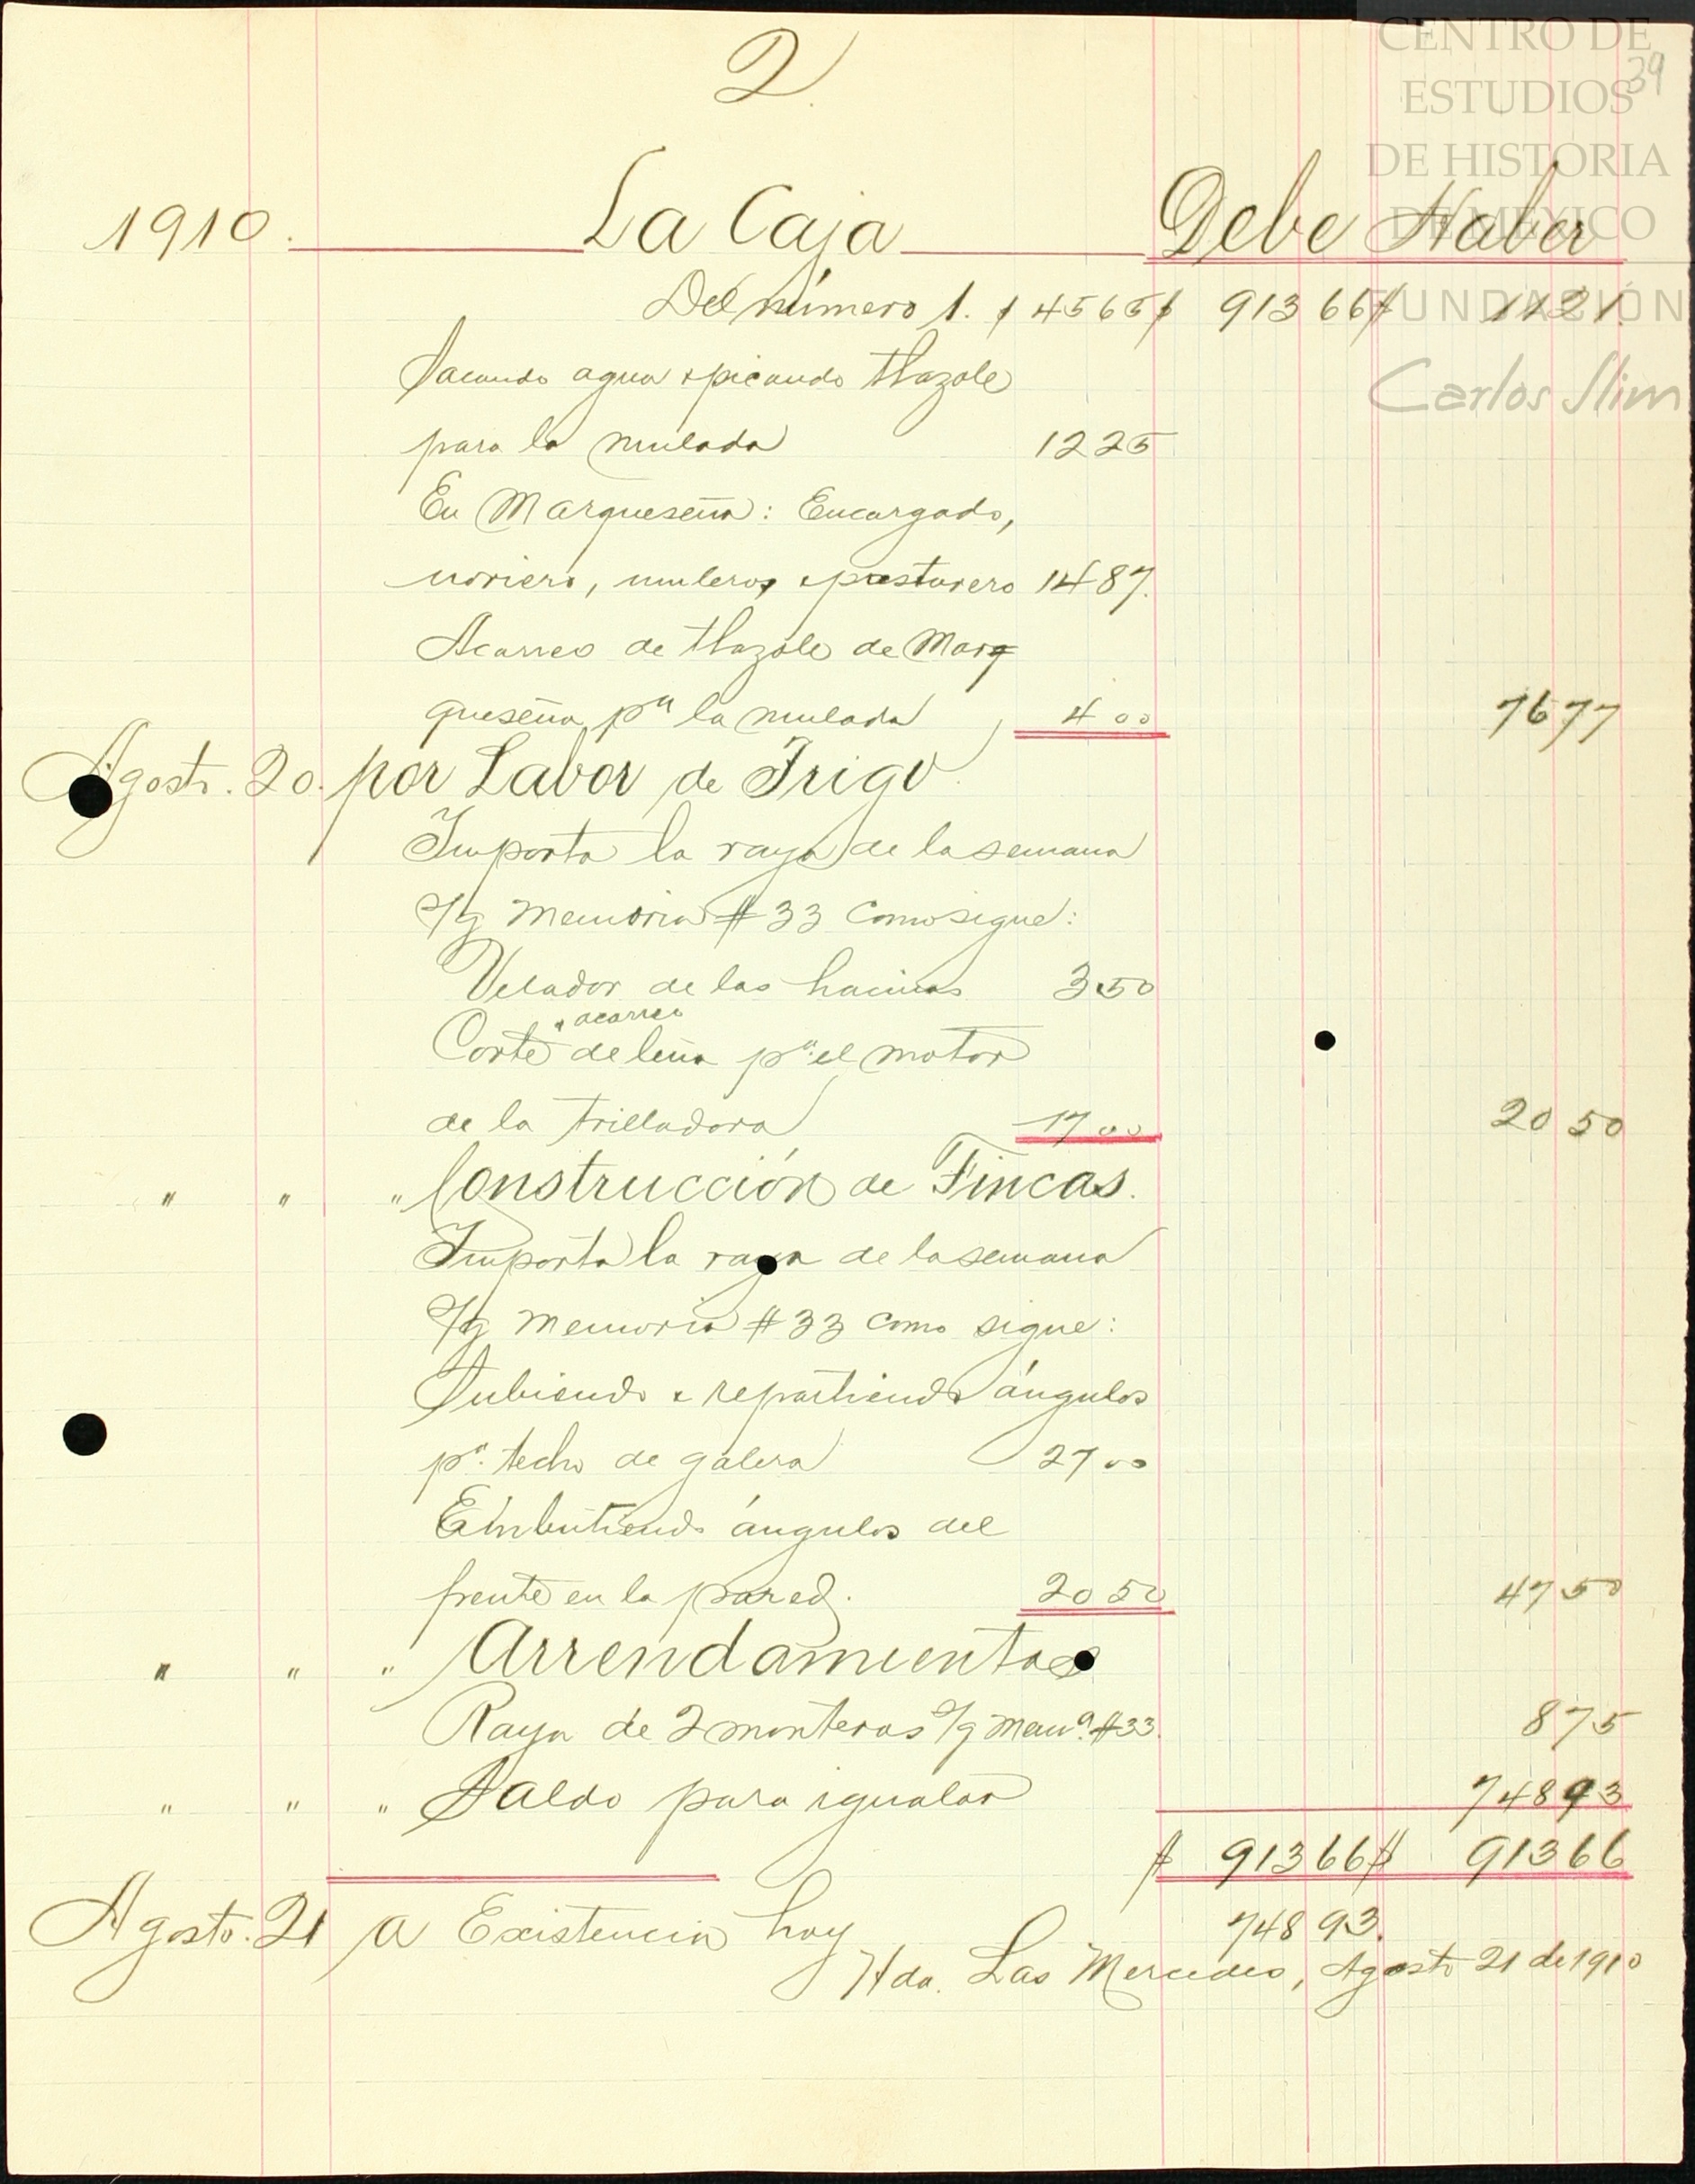 2
39
CENTRO DE
ESTUDIOS
DE HISTORIA
DE MÉXICO
FUNDACIÓN
Carlos Slim
1910. La Caja Debe Haber
Del número 1. $ 45 65 $ 913 66 $ 11 21.
Sacando agua & picando tlazole
para la mulada 12 25
En Marqueseña: Encargado,
noriero, muleros & pasturero 14 87.
Acarreo de tlazole de Marq
queseña pª la mulada 4 00 76 77
Agosto. 20. por Labor de Trigo
Importa la raya de la semana
s/g memoria # 33 como sigue:
Velador de las hacinas 3 50
& acarreo
Corte de leña pª el motor
de la trilladora 17 00 20 50
" " " Construcción de Fincas.
Importa la raya de la semana
s/g memoria # 33 como sigue:
Subiendo & repartiendo ángulos
pª techo de galera 27 00
Embutiendo ángulos del
frente en la pared. 20 50 47 50
" " " Arrendamientos
Raya de 2 monteros s/g memª #33. 8 75
" " " Saldo para igualar 748 93
$ 913 66 $ 913 66
Agosto. 21 a Existencia hoy 748 93.
Hda. Las Mercedes, Agosto 21 de 1910